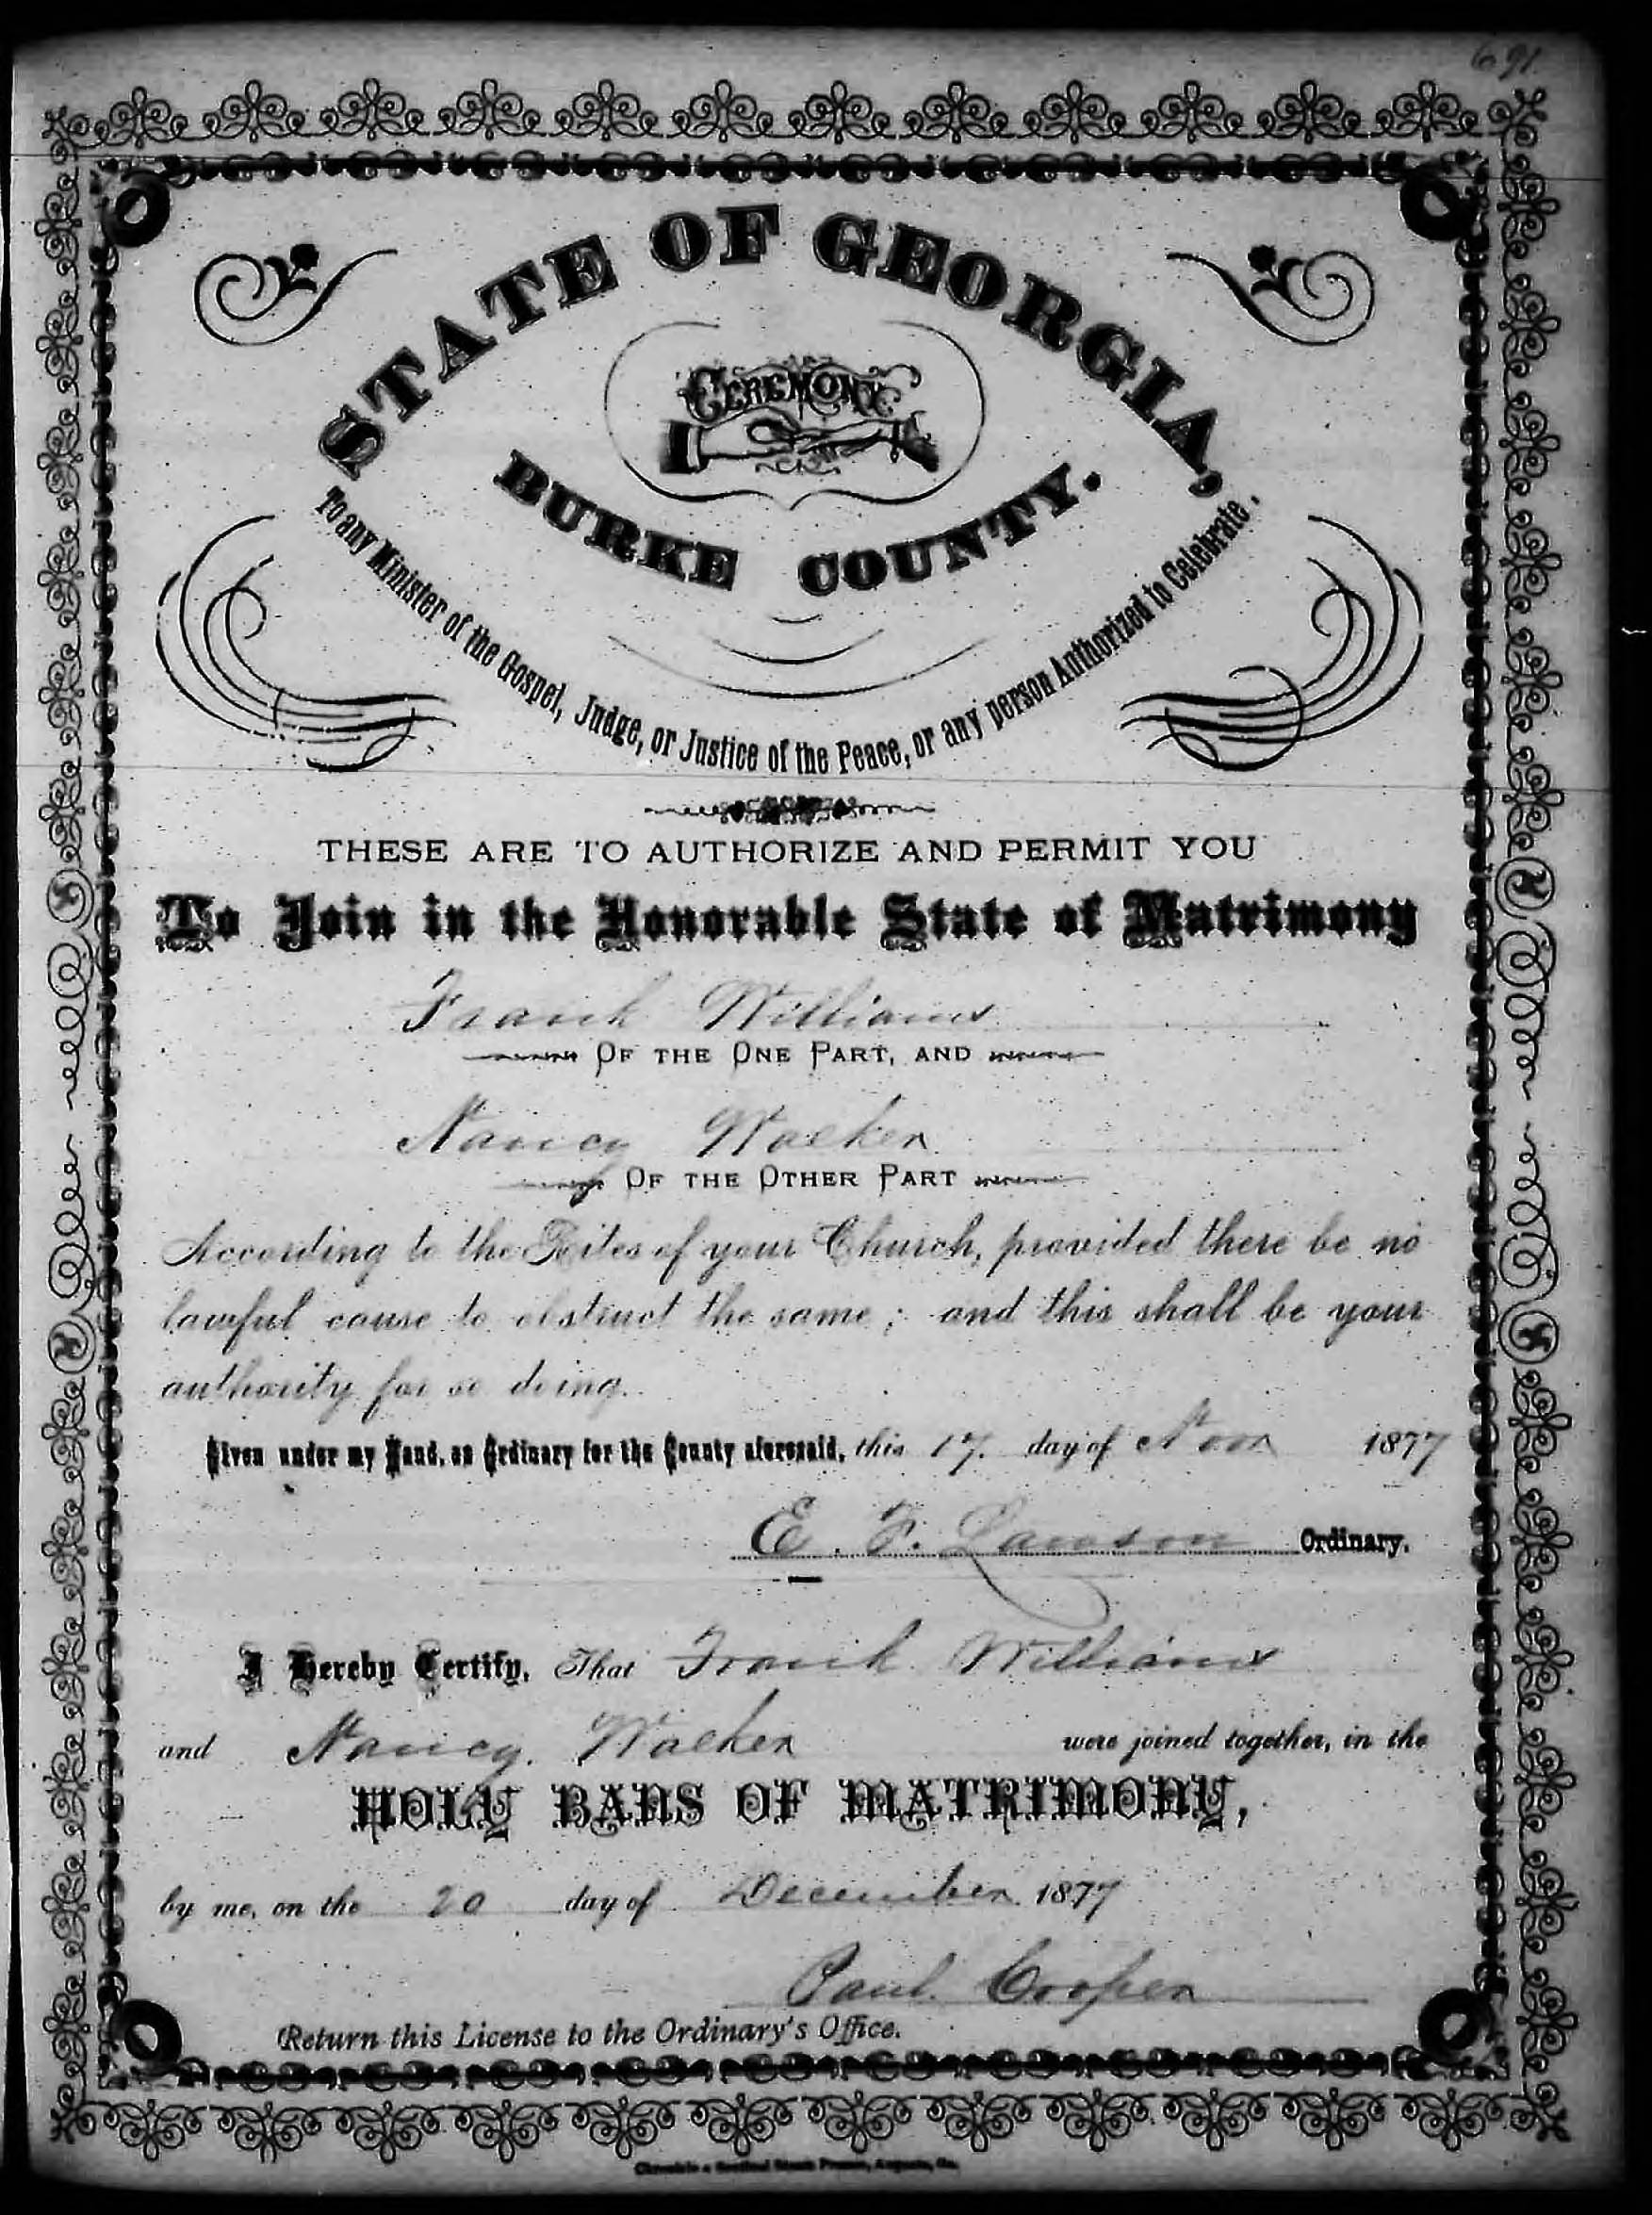 691
STATE OF GEORGIA,
CEREMONY
BURKE COUNTY.
To any Minister of the Gospel, Judge, or Justice of the Peace, or any person Authorized to Celebrate.
THESE ARE TO AUTHORIZE AND PERMIT YOU
To Join in the Honorable State of Matrimony
Frank Williams
OF THE ONE PART, AND
Nancy Walker
OF THE OTHER PART
According to the Rites of your Church, provided there be no
lawful cause to obstruct the same; and this shall be your
authority for so doing.
Given under my Hand, as Ordinary for the County aforesaid, this 17. day of 1877
E. F. Lawson Ordinary.
I Hereby Certify, That Frank Williams
and Nancy. Walker were joined together, in the
HOLY BANS OF MATRIMONY,
by me, on the 20 day of December 1877
Paul. Cooper
Return this License to the Ordinary's Office.
Chronicle & Sentinel Steam Presses, Augusta, Ga.